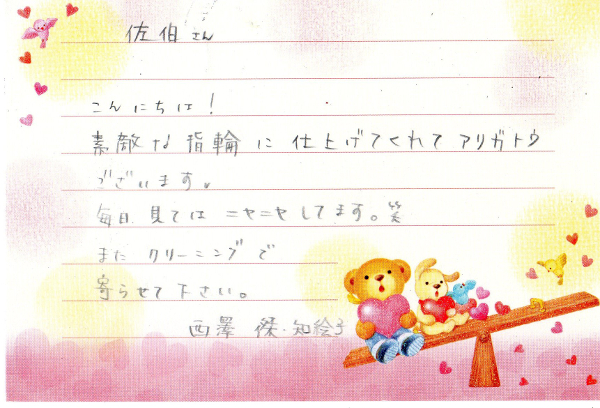 佐伯さん
こんにちは!
素敵な指輪に仕上げてくれてアリガトウ
ございます。
毎日、見てはニヤニヤしてます。笑
またクリーニングで
寄らせて下さい。
西澤 傑・知絵子